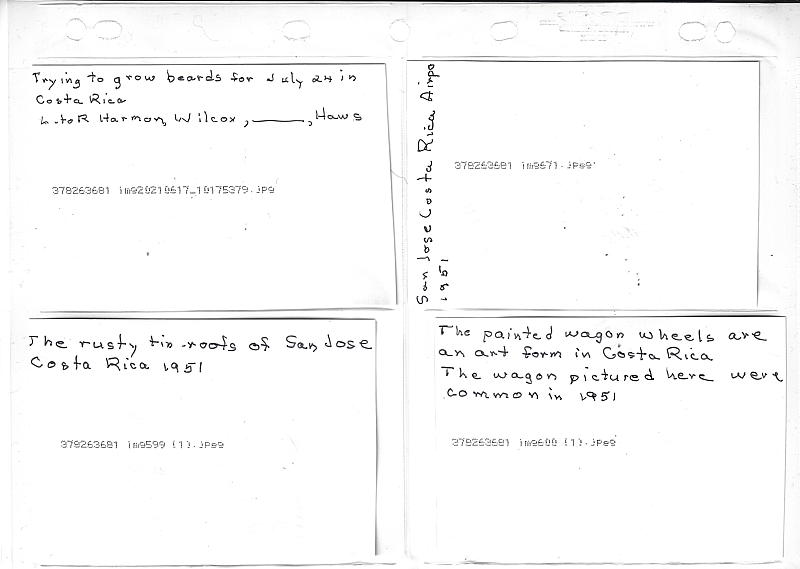 Trying to grow beards for July 24 in
Costa Rica
L. to R Harmon, Wilcox, ______, Haws
378263681 img20210617_10175379.jpg
San Jose Costa Rica Airpo
1951
378263681 img671.jpeg
The rusty tin-roofs of San Jose
Costa Rica 1951
378263681 img599 (1).jpeg
The painted wagon wheels are
an art form in Costa Rica
The wagon pictured here were
common in 1951
378263681 img600 (1).jpeg